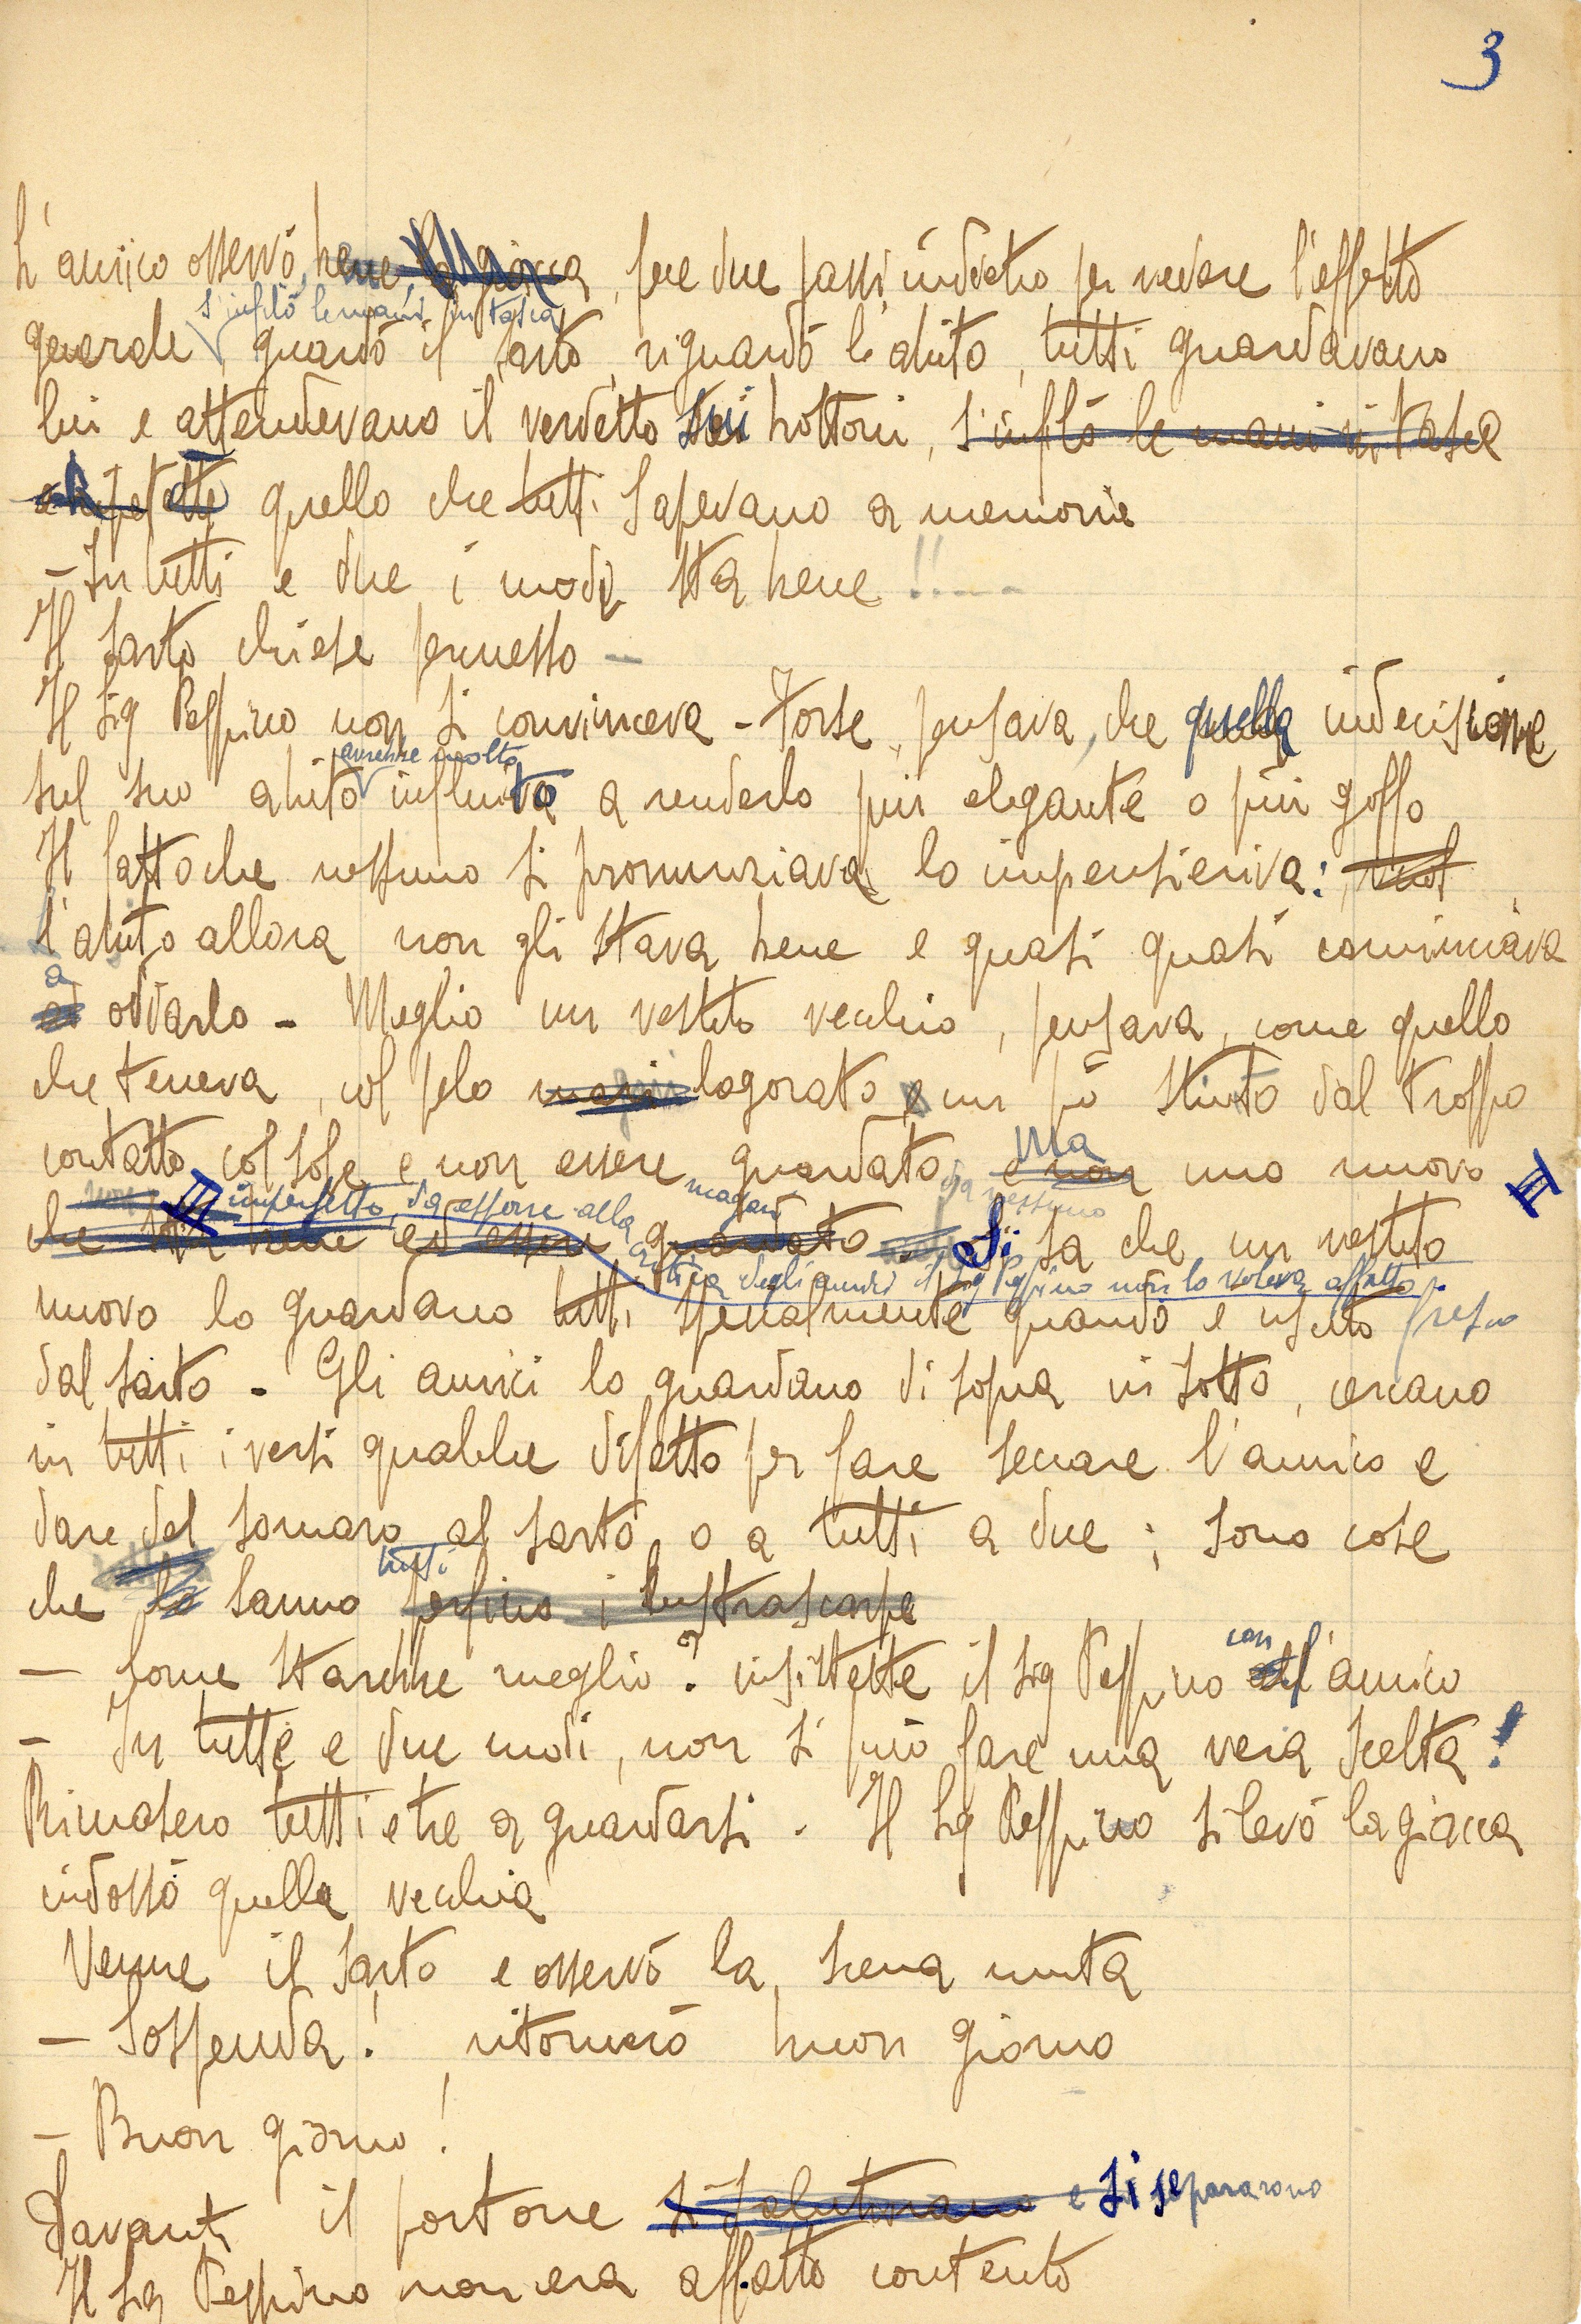 3
L'amico osservò, bene la giacca, fece due passi indietro per vedere l'effetto
s'infilò le mani in tasca
generale, guardò il sarto, riguardò l'abito, tutti guardavano
lui e attendevano il verdetto sui bottoni, s'infilò le mani in tasca
e ripetette quello che tutti sapevano a memoria
– In tutti e due i modi sta bene!!....
Il sarto chiese permesso –
Il Sig Peppino non si convinceva – Forse, pensava, che quella indecisione
avrebbe molto
sul suo abito influito a renderlo più elegante o più goffo
Il fatto che nessuno si pronunziava lo impensieriva:
l'abito allora non gli stava bene e quasi quasi cominciava
a
ad odiarlo – Meglio un vestito vecchio, pensava, come quello
che teneva, col pelo logorato e un pò stinto dal troppo
contatto col sole e non essere guardato e non uno nuovo
Ma
imperfetto, da esporre alla magari da nessuno
che sta bene ed essere guardato. Si sa che un vestito
critica degli amici il Sig Peppino non lo voleva affatto.
nuovo lo guardano tutti specialmente quando è uscito fresco
dal sarto – Gli amici lo guardano di sopra in sotto, cercano
in tutti i versi qualche difetto per fare seccare l'amico e
dare del somaro al sarto o a tutti a due; sono cose
tutti
che le sanno perfino i lustrascarpe
– Come starebbe meglio? insistette il Sig Peppino con l'amico
– In tutte e due modi, non si può fare una vera scelta!
Rimasero tutti e tre a guardarsi. Il Sig Peppino si levò la giacca
indossò quella vecchia
Venne il sarto e osservò la scena muta
– Sospenda! ritornerò buon giorno
– Buon giorno!
Davanti il portone si salutarono e si separarono
Il Sig Peppino non era affatto contento